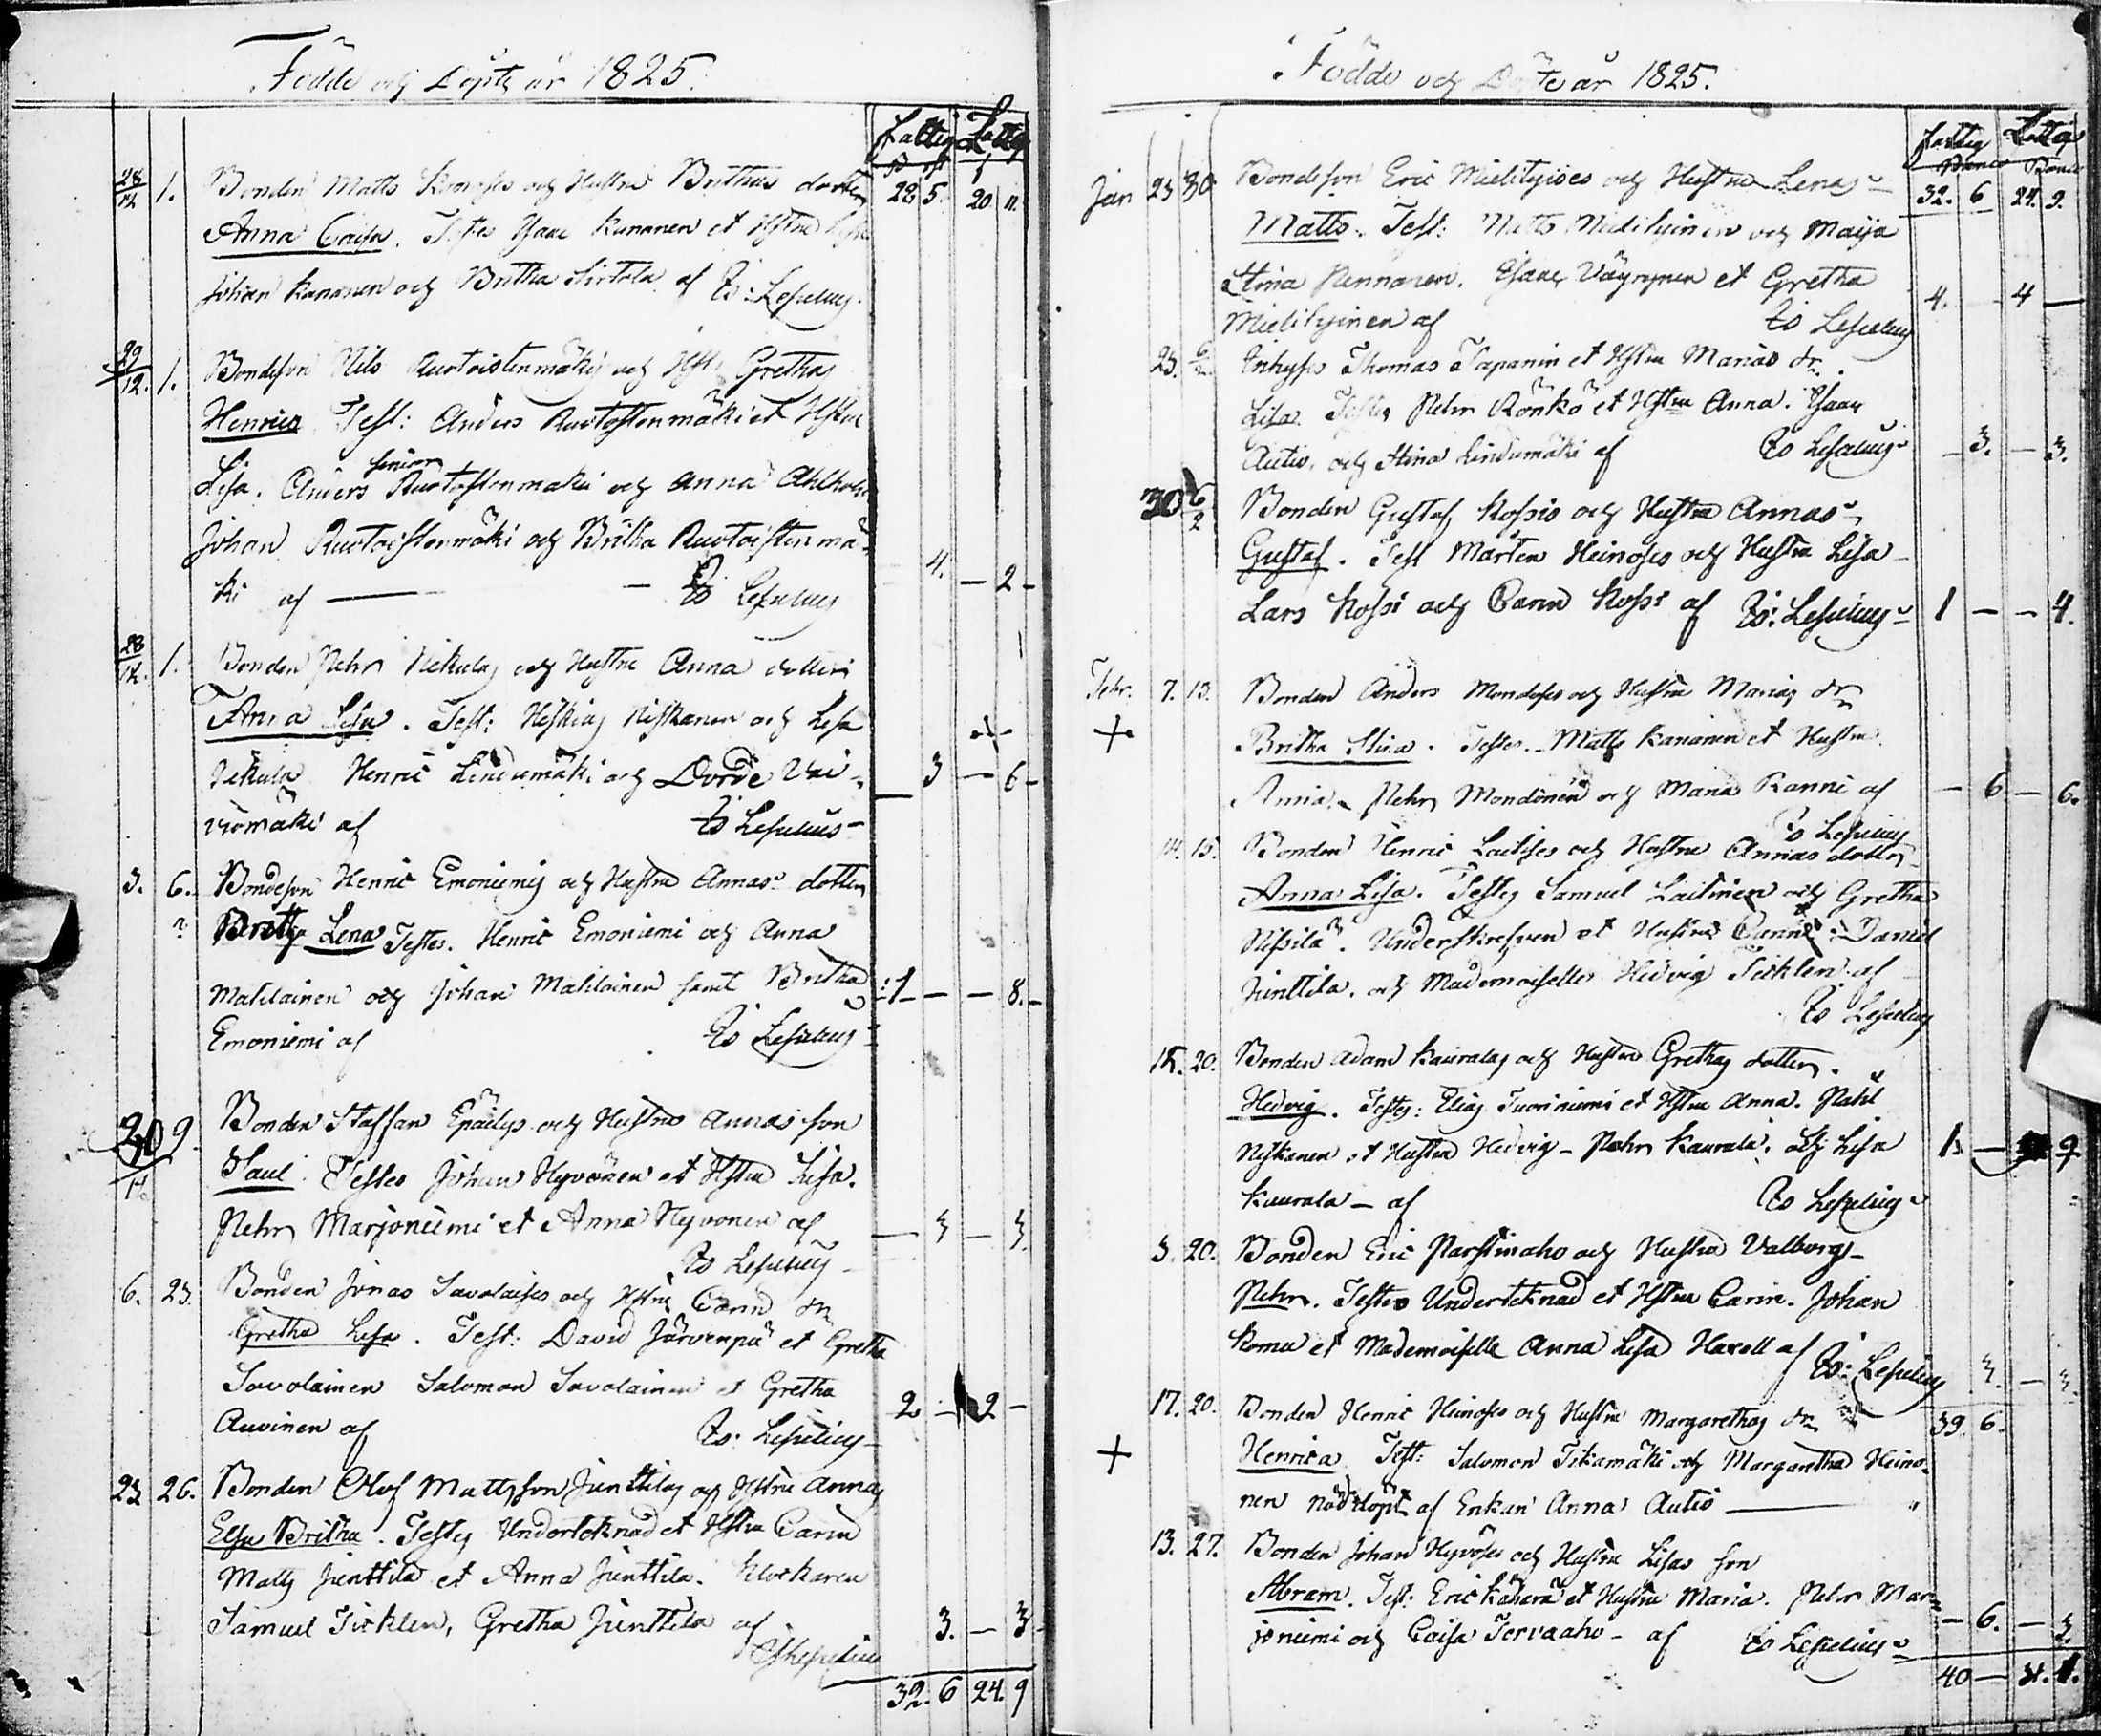 Födde och Döpte år 1825.
Fattig Lottig
28/12 1. Bonden Matts Kanoses och Hustru Brithas dotter 28 5. 20 11.
Anna Caisa. Testes Isaac Kananen et Hstru
Johan Kananen och Britha Sirtola af Es: Lepelius.
29/12. 1. Bondeson Nils Ruotoistenmäkis och Hstr Grethas
Henric Test: Anders Ruotoistenmäki et Hstru
Lisa. Anders senior Ruotoistenmäki och Anna
Johan Ruotoistenmäki och Britha Ruotoistenmä-
ki af — Es Lepelius 4. — 2 -
28/12. 1. Bonden Pehr Nikulas och Hustru Anna dotter
Anna Lisa. Test: Hiskias Niskanen och Lisa
Nikula Henric Lindumäki och Dorde Vai- 3 — 6 -
viomäki af Es Lepelius -
3. 6. Bondeson Henric Emoniemis och Hustru Annas dotter
Britha Lena Testes. Henric Emoniemi och Anna
Malilainen och Johan Malilainen samt Britha 1 — — 8. -
Emoniemi af Es Lepelius
30 9. Bonden Staffan Epäilys och Hustrus Annas son
Paul. Testes Johan Hyvönen et Hstru Lisa.
Pehr Marjoniemi et Anna Hyvonen af — 3 — 3.
Es Lepelius
6. 23. Bonden Jonas Savolaises och Hstru Carin dr
Gretha Lisa. Test: David Järvenpä et Gretha
Savolainen Salomon Savolainen et Gretha 2 — 2 -
Auvinen af Es: Lepelius -
23 26. Bonden Olof Mattsson Junttilas och Hstru Annas
Elsa Britha. Testes Underteknad et Hstru Carin
Matts Junttila et Anna Junttila. Klockaren
Samuel Ticklen, Gretha Junttila af 3. — 3
Lepelius
32. 6 24. 9
Födde och Döpte år 1825.
Fattig Lottig
Banco Banco
Jan 23 30. Bondeson Eric Mielityises och Hustru Lenas 32. 6 24. 9.
Matts. Test: Matts Mielityinen och Maija
Stina Pennanen. Isaac Väyrynen et Gretha
Mielityinen af Es Lepelius 4. — 4 —
23. 6/2 Inhyses Thomas Tapanin et Hstru Marias dr.
Lisa. Testes Pehr Rönkö et Hstru Anna. Isaac
Autio. och Stina Lindumäki af Es Lepelius — 3. — 3.
30 6/2 Bonden Gustaf Kossis och Hustru Annas
Gustaf. Test Mårten Heinoses och Hustru Lisa -
Lars Kossi och Carin Kossi af Es: Lepelius 1 — — 4.
Febr. 7. 13. Bonden Anders Mondoses och Hustru Marias dr
+ Britha Stina. Testes. Matts Kananen et Hustru
Anna. Pehr Mondonen och Maria Kanni af — 6 — 6.
Es Lepelius
14. 15. Bonden Henric Laitises och Hustru Annas dotter
Anna Lisa. Testes Samuel Laitinen och Gretha
Nissilä. Underskrefven et Hustru Carin. Daniel
Junttila. och Mademoiselle Hedvig Ticklen af
Es Lepelius
15. 20. Bonden Adam Kauralas och Hustru Grethas dotter.
Hedvig. Testes: Elias Tuoriniemi et Hstru Anna. Pahl
Niskanen et Hustru Hedvig - Pehr Kaurala. och Lisa 1. — 9
Kaurala - af Es Lepelius
3. 20. Bonden Eric Parstinaho och Hustru Valborgs -
Pehr. Testes Underteknad et Hstru Carin. Johan
Komu et Mademoiselle Anna Lisa Haxell af Es: Lepelius 3. — 3.
17. 20. Bonden Henric Heinoses och Hustru Margarethas dr 39. 6.
+ Henrica Test: Salomon Tikamäki och Margaretha Heino-
nen nöddöpt af Enkan Anna Autio —
13. 27. Bonden Johan Hyvöses och Hustru Lisas son
Abram. Test: Eric Kähärä et Hustru Maria. Pehr Mar-
joniemi och Caisa Tervaaho - af Es Lepelius — 6. — 3.
40 —